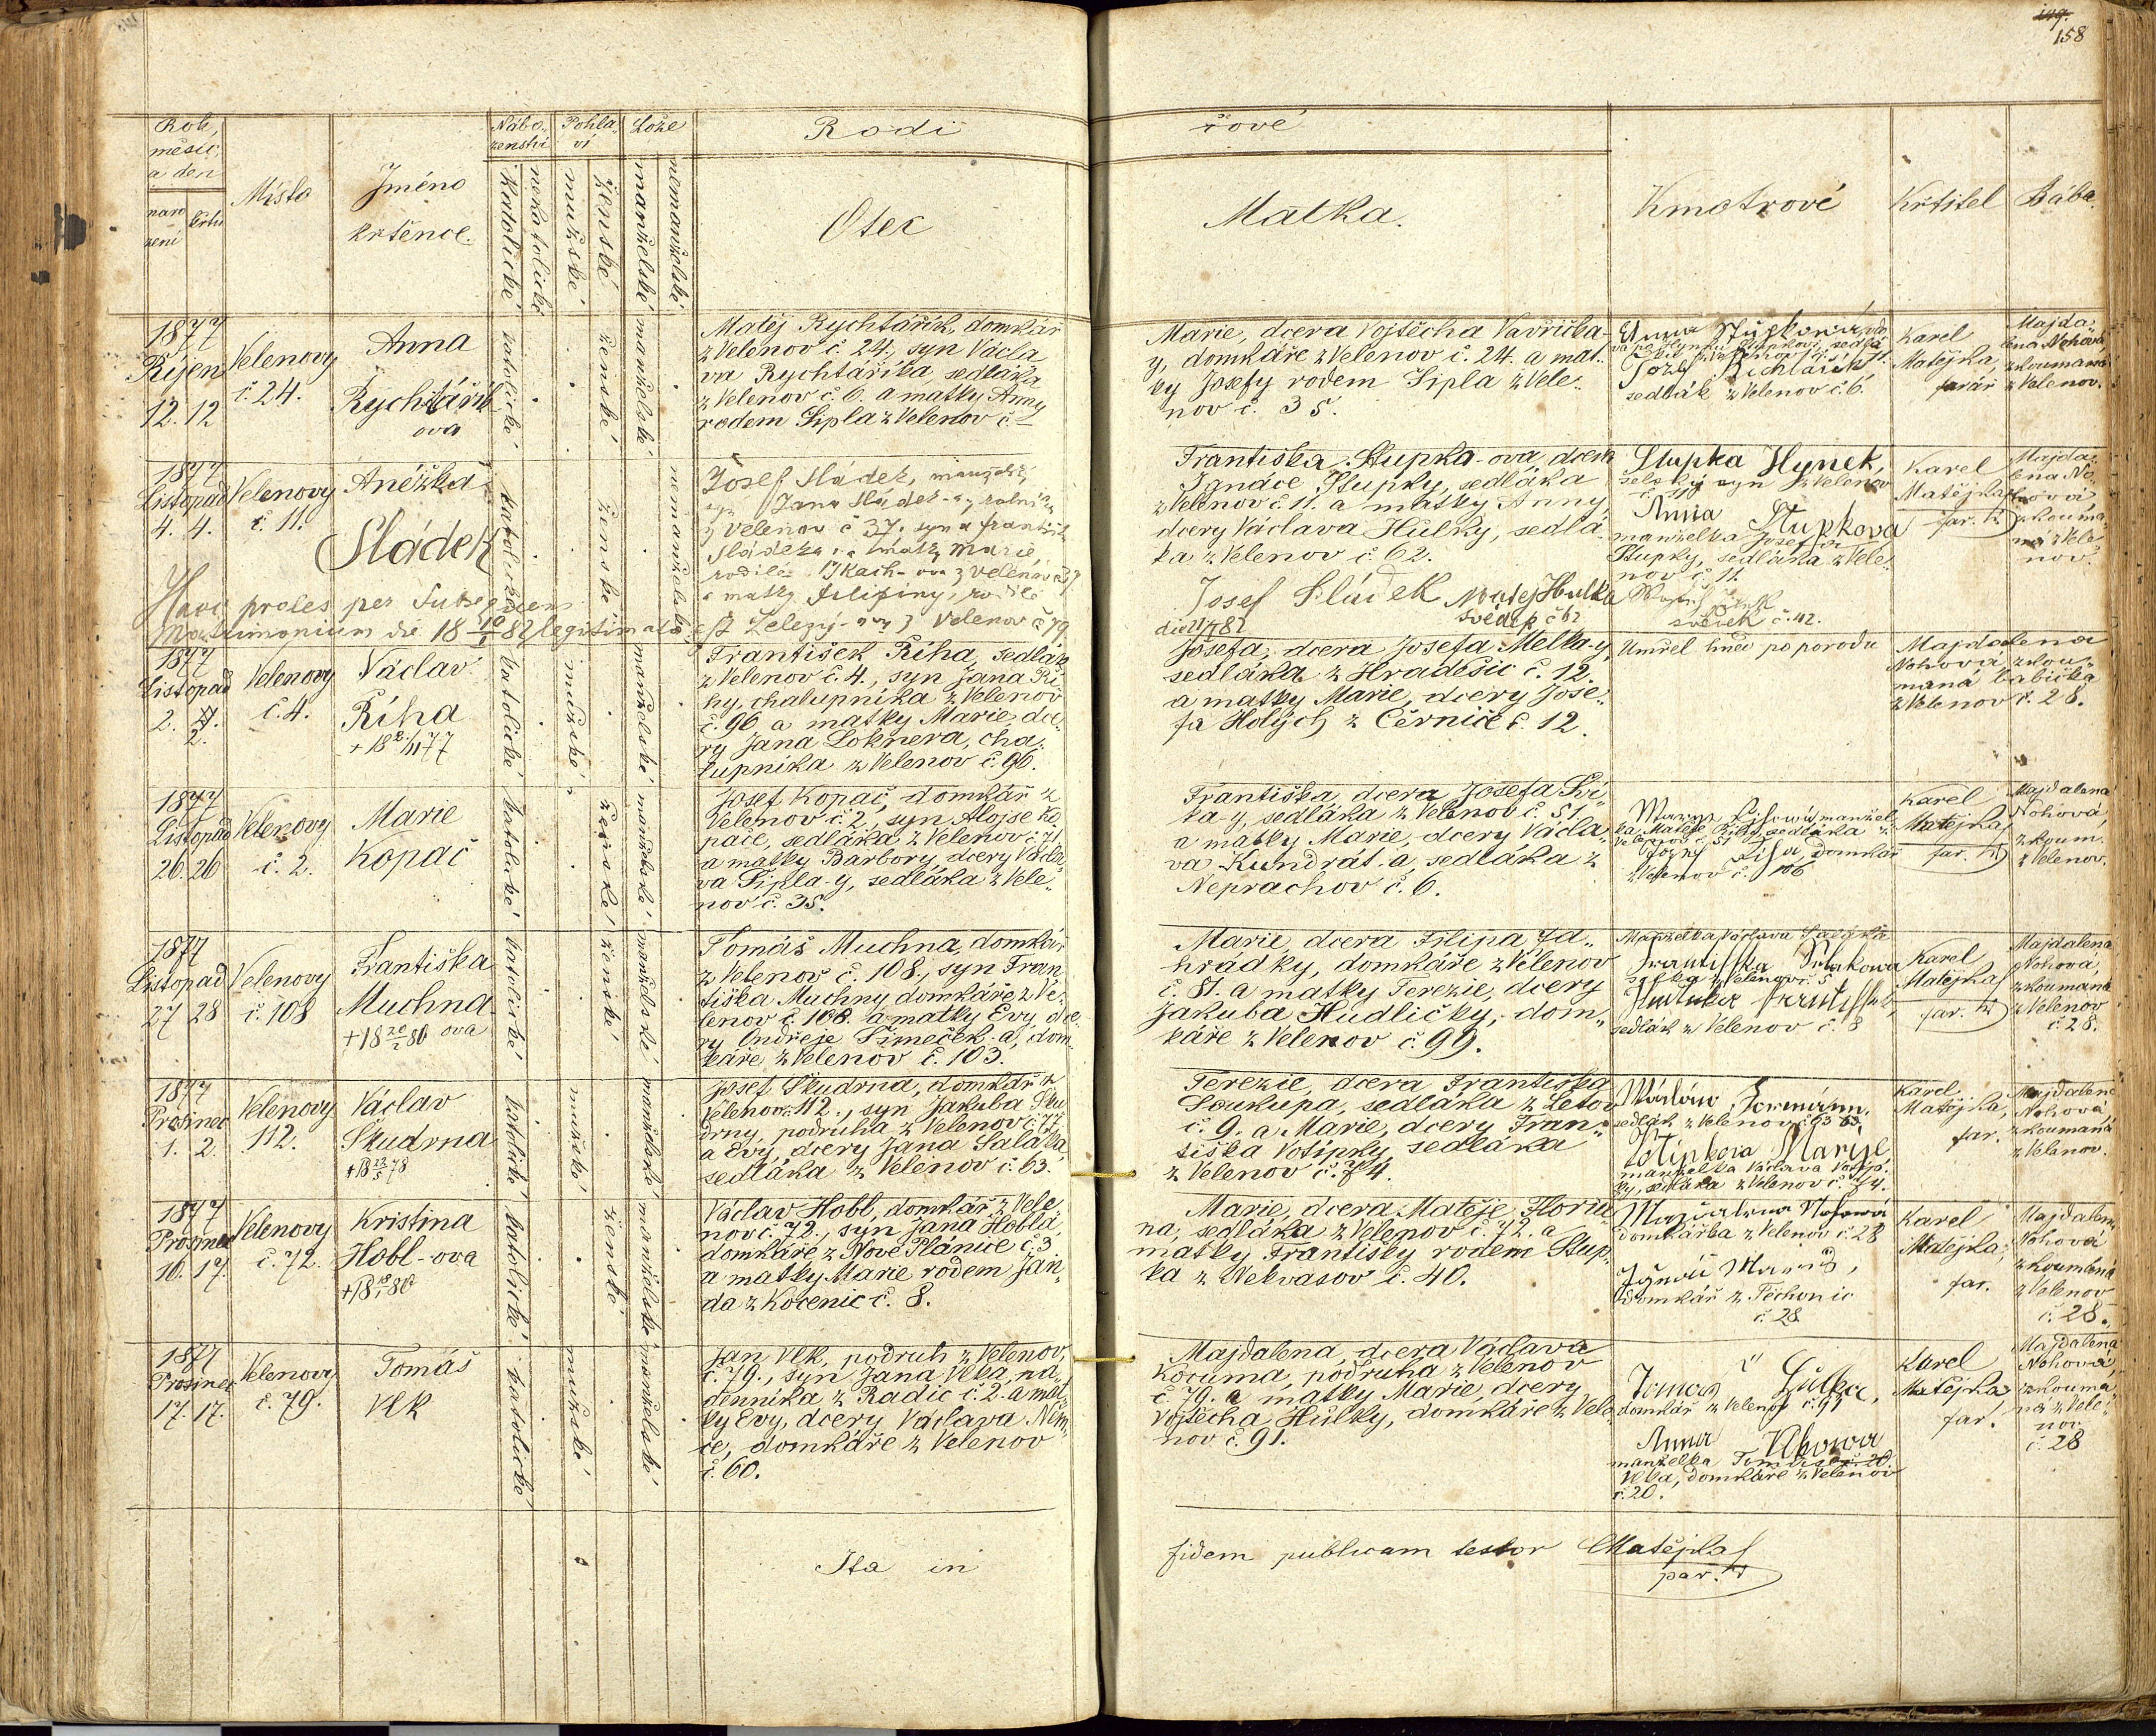 149.
158
Rok,
měsíc,
a den
naro
zení
křtu
Místo
Jméno
křtěnce.
Nábo-
ženství
katolické
nekatolické
Pohla-
ví
mužské
ženské
Lože
manželské
nemanželské
Rodi
čové
Otec
Matka.
Kmotrové
Křtitel
Bába.
1877
Říjen
12. 12
Velenovy
č. 24.
Anna
Rychtářík
ova
katolické
ženské
manželské
Matěj Rychtářík, domkář
z Velenov č. 24., syn Václa
va Rychtáříka, sedláka
z Velenov č. 6. a matky Anny
rodem Šipla z Velenov č.
Marie, dcera Vojtěcha Vavřička-
y, domkáře z Velenov č. 24. a mat.
ky Josefy rodem Šipla z Vele-
nov č. 35.
Anna Stupková
Jozef Richtářík
sedlák z Velenov č. 6.
Karel
Matějka,
farář
Majda-
lena Nohová
zkoumaná
z Velenov.
1877
Listopad
4. 4.
Velenovy
č. 11.
Anéžka
Sládek
katolické
ženské
nemanželské
Josef Sládek, manžel.
syn Jana Sládek-a, rolníka
z Velenov č 37. syn a Františka
Sládeka a matky Marie,
rodilé Tkach-ova z Velenov č 37
a matky Filipiny, rodilé
Železný-ovy z Velenov č 79.
Haec proles per subsequens
Matrimonium die 18 10/1 82 legitimata est
Františka Stupka-ova, dcera
Ignáce Stupky, sedláka
z Velenov č. 11. a matky Anny
dcery Václava Hůlky, sedlá-
ka z Velenov č. 62.
Josef Sládek
Matej Hulka
svědek č 62
svědek č. 42.
Stupka Hynek,
selský syn z Velenov
č. 11
Anna Stupkova
manželka Josefa
Stupky, sedláka z Vele-
nov č. 11.
Karel
Matějka
far.
Majda-
lena No-
hová
zkouma-
ná z Vele-
nov.
1877
Listopad
2. 2.
Velenovy
č. 4.
Václav
Říha
+ 18 2/11 77
katolické
mužské
manželské
František Říha, sedlák
z Velenov č. 4., syn Jana Ří-
hy, chalupníka z Velenov
č. 96, a matky Marie, dce-
ry Jana Loknera, cha-
lupníka z Velenov č. 96.
Josefa, dcera Josefa Melka-y,
sedláka z Hradešic č. 12.
a matky Marie, dcery Jose-
fa Holých z Černič č. 12.
Umřel hned po porodu
Majdalena
Nohová, zkou-
maná babička
z Velenov č. 28.
1877
Listopad
26. 26
Velenovy
č. 2.
Marie
Kopač
katolické
ženské
manželské
Josef Kopač, domkář z
Velenov č. 2., syn Alojse Ko-
pače, sedláka z Velenov č. 71
a matky Barbory, dcery Václa-
va Šipla-y, sedláka z Vele-
nov č. 35.
Františka, dcera Josefa Ří-
ha-y, sedláka z Velenov č. 51
a matky Marie, dcery Václa-
va Kundrát-a, sedláka z
Neprachov č. 6.
manžel-
ka Matěje Říhy, sedláka z
Velenov č. 51
domkář
z Velenov č. 106
Karel
Matějka
far.
Majdalena
Nohová,
zkoum.
z Velenov.
1877
Listopad
27 28
Velenovy
č. 108
Františka
Muchna-
ova
+ 18 20/2 80
katolické
ženské
manželské
Tomáš Muchna, domkář
z Velenov č. 108., syn Fran
tiška Muchny domkáře z Ve-
lenov č. 108. a matky Evy dce-
ry Ondřeje Šimeček-a, dom-
káře z Velenov č. 103.
Marie, dcera Filipa Za-
hrádky, domkáře z Velenov
č. 81. a matky Terezie, dcery
Jakuba Hudličky, dom-
káře z Velenov č. 99.
Manželka Václava
sedlák z Velenov č. 8
Karel
Matějka
far.
Majdalena
Nohová,
zkoumaná
z Velenov
č. 28.
1877
Prosinec
1. 2.
Velenovy
112.
Václav
Skudrna
+ 18 23/5 78
katolické
mužské
manželské
Josef Skudrna, domkář z
Velenov č. 112., syn Jakuba Sku-
drny, podruha z Velenov č. 77
a Evy, dcery Jana Saláka
sedláka z Velenov č. 63.
Terezie, dcera Františka
Soukupa, sedláka z Letov
č. 9. a Marie, dcery Fran-
tiška Votípky, sedláka
z Velenov č. 74.
sedlák z Velenov č. 63.
Votipkova Marye
manželka Václava Votip-
ky, sedláka z Velenov č. 74.
Karel
Matějka,
far.
Majdalena
Nohová
zkoumaná
z Velenov.
1877
Prosinec
16. 17.
Velenovy
č. 72.
Kristina
Hobl-ova
katolické
ženské
manželské
Václav Hobl, domkář z Vele-
nov č. 72., syn Jana Hobla
domkáře z Nové Plánice č. 3
a matky Marie rodem Jan-
da z Kocenic č. 8.
Marie, dcera Matěje Floriá-
na, sedláka z Velenov č. 72. a
matky Františky rodem Stup-
ka z Nekvasov č. 40.
Majdalena Nohowá
domkářka z Velenov č. 28
domkář z Těchonic
č. 28
Karel
Matějka,
far.
Majdalena
Nohová
zkoumaná
z Velenov
č. 28.
1877
Prosinec
17. 17.
Velenovy
č. 79.
Tomáš
Vlk
katolické
mužské
manželské
Jan Vlk, podruh z Velenov
č. 79., syn Jana Vlka, ná-
denníka z Radic č. 2. a mat-
ky Evy, dcery Václava Něm-
ce, domkáře z Velenov
č. 60.
Majdalena, dcera Václava
Kocuma, podruha z Velenov
č. 79. a matky Marie, dcery
Vojtěcha Hůlky, domkáře z Vele-
nov č. 91.
Tomas Hulka,
domkář z Velenov č. 91
Anna Vlkowa
manželka Tomáše
Vlka, domkáře z Velenov
č. 20.
Karel
Matějka
far.
Majdalena
Nohová,
zkouma-
ná z Vele-
nov
č. 28
Ita in
fidem publicam testor Matějka
par.